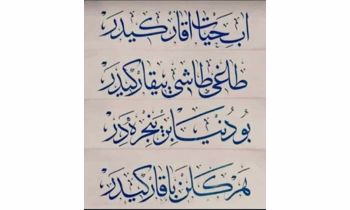 آب حیات آقار کیدر
طاغی طاشی ییقار کیدر
بو دنیا بر پنجره در
هر کلن باقار کیدر